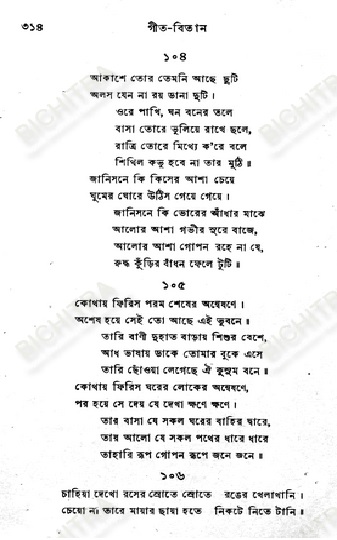 ৩১৪
গীত-বিতান
১০৪
আকাশে তোর তেমনি আছে ছুটি
অলস যেন না রয় ডানা দুটি।
ওরে পাখি, ঘন বনের তলে
বাসা তোরে ভুলিয়ে রাখে ছলে,
রাত্রি তোরে মিথ্যে ক'রে বলে
শিথিল কভু হবে না তার মুঠি॥
জানিসনে কি কিসের আশা চেয়ে
ঘুমের ঘোরে উঠিস গেয়ে গেয়ে।
জানিসনে কি ভোরের আঁধার মাঝে
আলোর আশা গভীর সুরে বাজে,
আলোর আশা গোপন রহে না যে,
রুদ্ধ কুঁড়ির বাঁধন ফেলে টুটি॥
১০৫
কোথায় ফিরিস পরম শেষের অন্বেষণে।
অশেষ হয়ে সেই তো আছে এই ভুবনে।
তারি বাণী দুহাত বাড়ায় শিশুর বেশে,
আধ ভাষায় ডাকে তোমার বুকে এসে
তারি ছোঁওয়া লেগেছে ঐ কুসুম বনে॥
কোথায় ফিরিস ঘরের লোকের অন্বেষণে,
পর হয়ে সে দেয় যে দেখা ক্ষণে ক্ষণে।
তার বাসা যে সকল ঘরের বাহির দ্বারে,
তার আলো যে সকল পথের ধারে ধারে
তাহারি রূপ গোপন রূপে জনে জনে॥
১০৬
চাহিয়া দেখো রসের স্রোতে স্রোতে রঙের খেলাখানি।
চেয়ো না তারে মায়ার ছায়া হতে নিকটে নিতে টানি।
BICHITRA